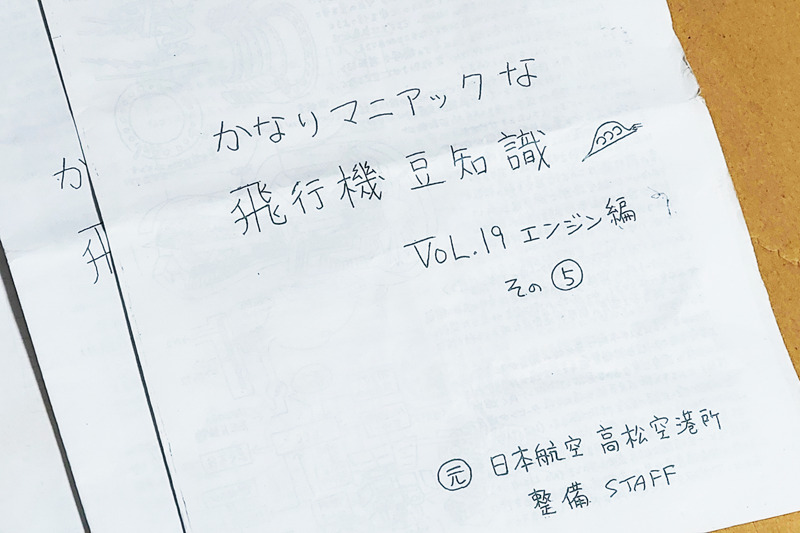 かなりマニアックな
飛行機豆知識
VOL.19 エンジン編
その⑤
㊤元 日本航空 高松空港所
整備 STAFF
か
飛